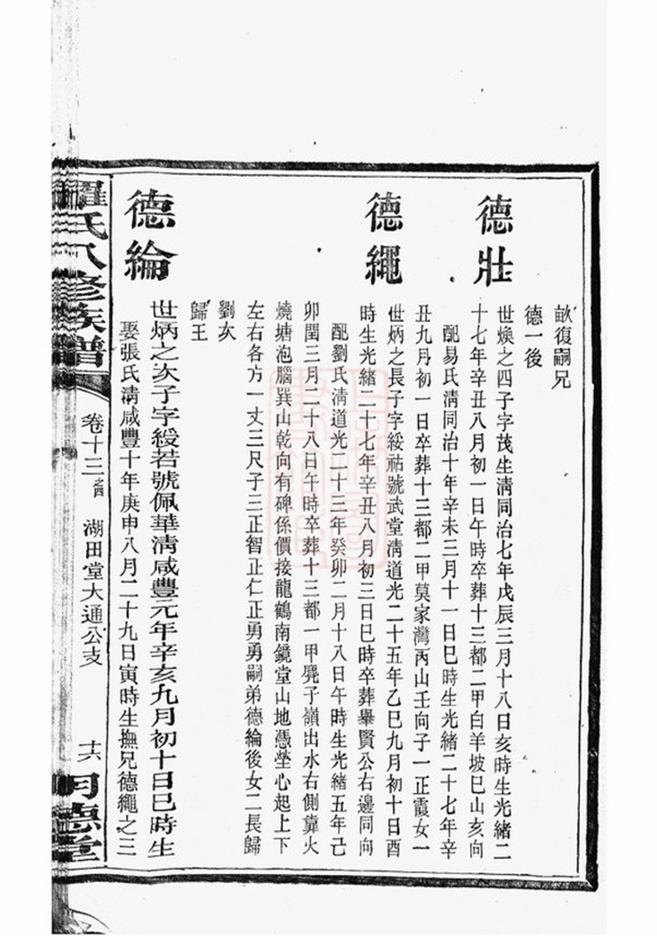 畝復嗣兄
德一後
德壯
世煥之四子字茂生清同治七年戊辰三月十八日亥時生光緒二
十七年辛丑八月初一日午時卒葬十三都二甲白羊坡巳山亥向
配易氏清同治十年辛未三月十一日巳時生光緒二十七年辛
丑九月初一日卒葬十三都二甲莫家灣丙山壬向子一正霞女一
德繩
世炳之長子字綏祜號武堂清道光二十五年乙巳九月初十日酉
時生光緒二十七年辛丑八月初三日巳時卒葬舉賢公右邊同向
配劉氏清道光二十三年癸卯二月十八日午時生光緒五年己
卯閏三月二十八日午時卒葬十三都一甲凳子嶺出水右側糞火
燒塘泡腦巽山乾向有碑係價接龍鶴南鏡堂山地憑塋心起上下
左右各方一丈三尺子三正智正仁正勇勇嗣弟德綸後女二長歸
劉次
歸王
德綸
世炳之次子字綏若號佩華清咸豐元年辛亥九月初十日巳時生
娶張氏清咸豐十年庚申八月二十九日寅時生撫兄德繩之三
羅氏八修族譜
卷十三之四
湖田堂大通公支
十六
德堂